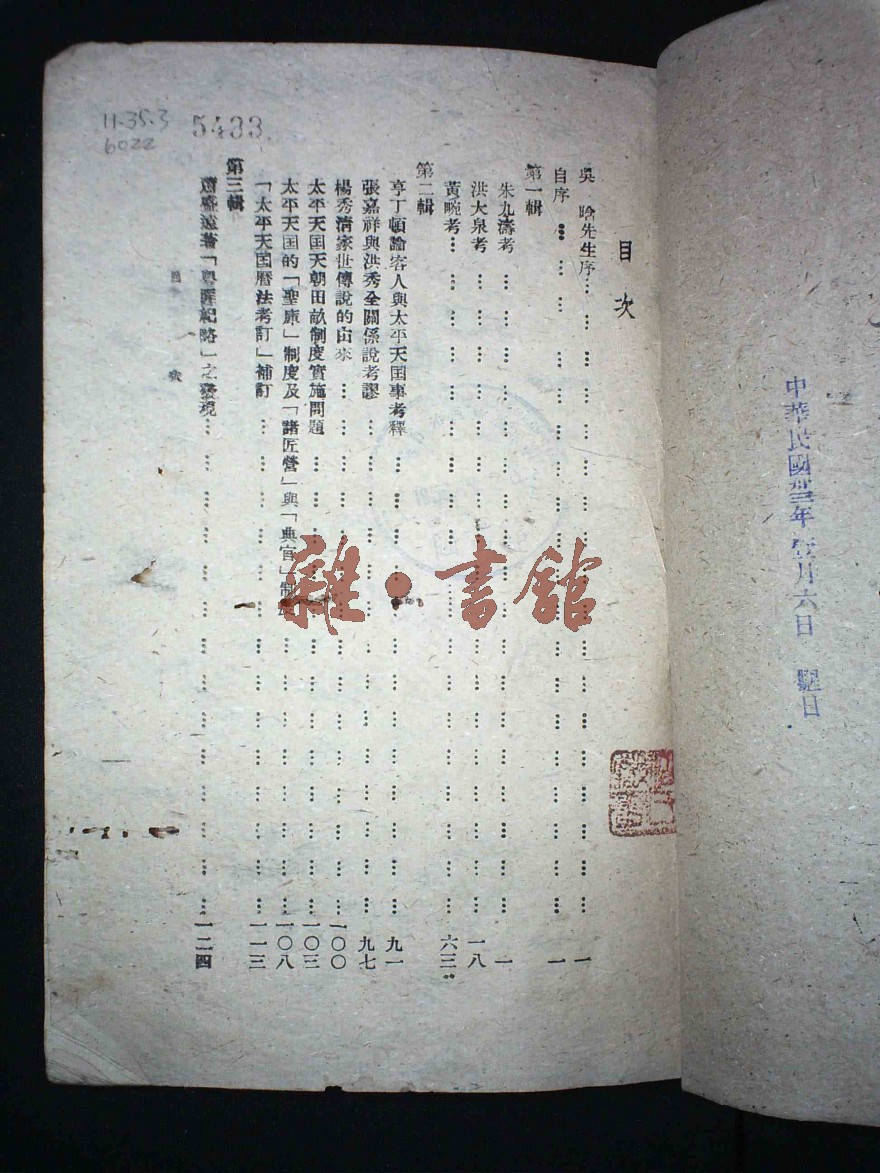 中華民國卅三年 月六日
目次
吳　晗先生序…… 一
自序…… 一
第一輯
朱九濤考…… 一
洪大泉考…… 一八
黃畹考…… 六三
第二輯
亨丁頓論客人與太平天国事考釋…… 九一
張嘉祥與洪秀全關係說考謬…… 九七
楊秀清家世傳說的由來…… 一〇〇
太平天国天朝田畝制度實施問題…… 一〇三
太平天国的「聖庫」制度及「諸匠營」與「典官」制度…… 一〇八
「太平天国曆法考訂」補訂…… 一一三
第三輯
蕭盛遠著「粵匪紀略」之發現…… 一二四
目次 一
11-35.3
6022
5433
雜·書館